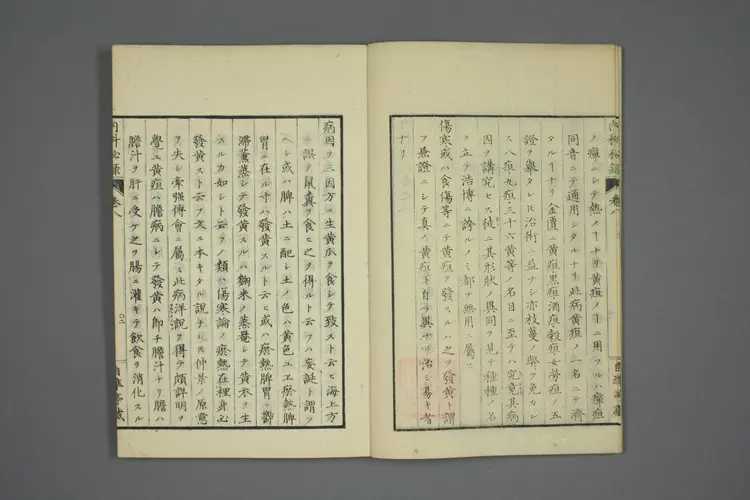 ノ癉ニシテ熱ノヿナリ黄疸ノヿニ用フルハ癉疸
同音ニテ通用シタルナリ此病黄疸ノ一名ニテ濟
タルヿナリ金匱ニ黄疸黒疸酒疸穀疸女勞疸ノ五
證ヲ擧タレ𪜈治術ニ益ナシ亦枝蔓ノ弊ヲ免カレ
ス八疸九疸三十六黄等ノ名目ニ至テハ究竟其病
因ヲ講究セス徒ニ其形狀ノ異同ヲ見テ種種ノ名
ヲ立テ浩博ニ誇ルノミ都テ無用ニ屬ス
傷寒或ハ食傷等ニテ黄疸ヲ發スルハ之ヲ發黄ト謂
フ兼證ニシテ真ノ黄疸ト自ラ異ナリ治シ易キ者
ナリ
内科秘録 卷八
病因ヲ三因方ニ生黄瓜ヲ食シテ致スト云ヒ海上方
ニ誤テ鼠糞ヲ食ヒ之ヲ得ルト云フハ妄誕ト謂ツ
ヘシ或ハ脾ハ土ニ配シ土ノ色ハ黄色ユヱ瘀熱脾
胃ニ在ル寸ハ發黄スルト云ヒ或ハ瘀熱脾胃ニ欝
滞薰蒸シテ發黄スルハ麹米ノ蒸罨シテ黄衣ヲ生
スルカ如シト云フノ類ハ傷寒論ノ瘀熱在裡身必
發黄スト云フ文ニ本キタル説ナレ𪜈仲景ノ原意
ヲ失シ牽强傅會ニ屬ス此病洋説ヲ得テ頗詳明ヲ
覺ユ黄疸ハ膽病ニシテ發黄ハ即チ膽汁ナリ膽ハ
膽汁ヲ肝ニ受ケ之ヲ腸ニ灌キテ飲食ヲ消化スル
内科秘録 卷八